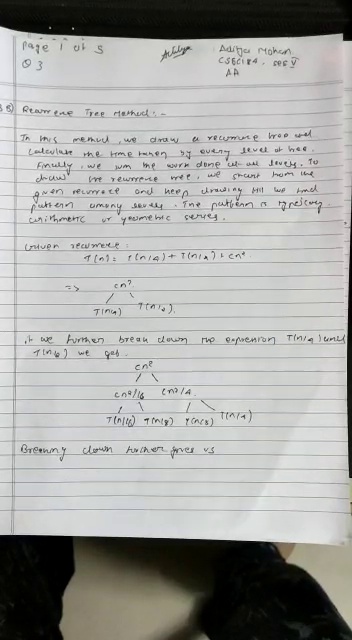 Page 1 of 5
Aditya Mohan
Q 3
CSE, SEC V
AA
Recurrence Tree Method : -
In this method, we draw a recurrence tree and
calculate the time taken by every level of tree.
Finally, we sum the work done at all levels. To
draw the recurrence tree, we start from the
given recurrence and keep drawing till we find
pattern among levels. The pattern is typically
arithmetic or geometric series.
Given recurrence:
T(n) = T(n/4) + T(n/2) + cn²
=> cn²
T(n/4) T(n/2)
If we further break down the expression T(n/4) and
we get
cn²
cn²/16 cn²/4
T(n/16) T(n/8) T(n/8) T(n/4)
Breaking down further gives us